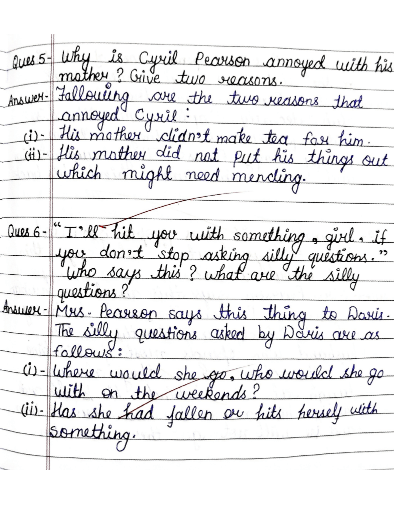 Ques 5- Why is Cyril Pearson annoyed with his
mother? Give two reasons.
Answer- Following are the two reasons that
annoyed Cyril:
(i)- His mother didn't make tea for him.
(ii)- His mother did not put his things out
which might need mending.
Ques 6- "I'll hit you with something, girl, if
you don't stop asking silly questions."
Who says this? What are the silly
questions?
Answer- Mrs. Pearson says this thing to Doris.
The silly questions asked by Doris are as
follows:
(i)- Where would she go, who would she go
with on the weekends?
(ii)- Has she had fallen or hits herself with
something.